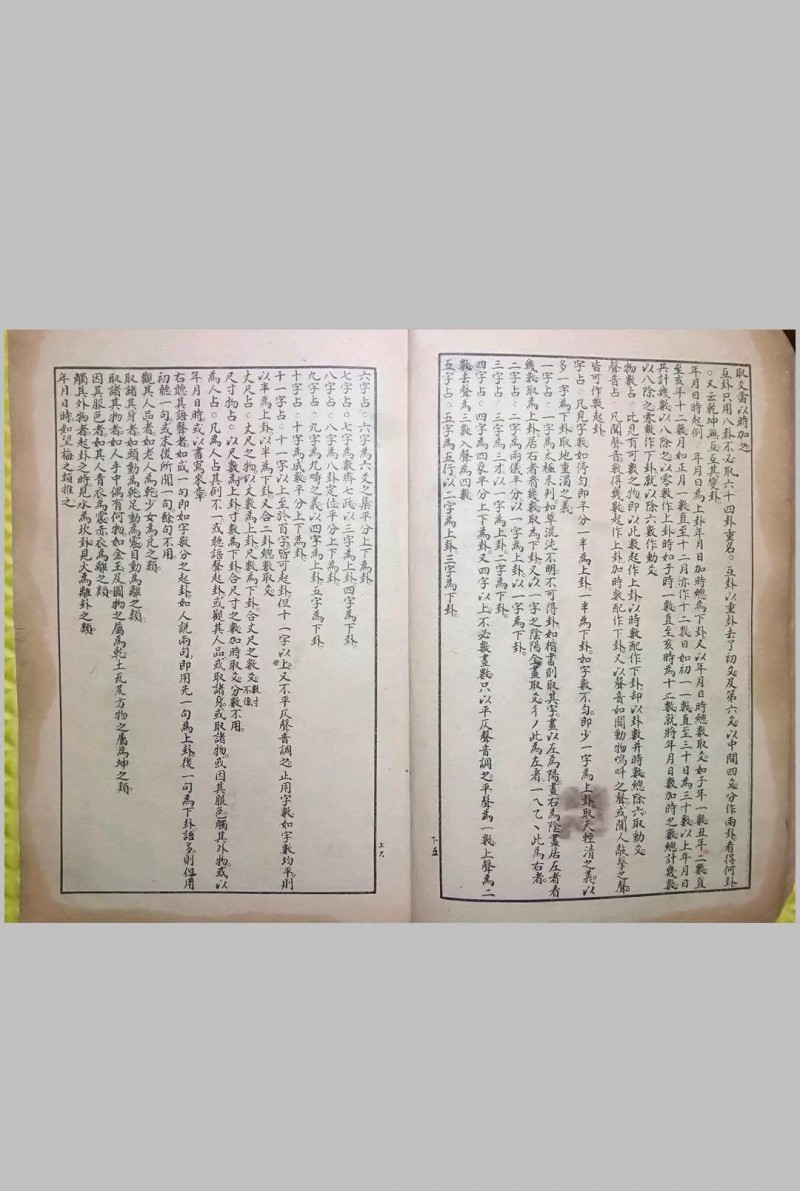 取爻當以時加之
互卦只用八卦不必取六十四卦重名。互卦以重卦去了初爻及第六爻以中間四爻分作兩卦看得何卦
。又云乾坤無互互其變卦。
年月日時起例。年月日為上卦年月日加時總為下卦又以年月日時總數取爻如子年一數丑年二數直
至亥年十二數月如正月一數直至十二月亦作十二數日如初一一數直至三十日為三十數以上年月日
共計幾數以八除之以零數作上卦時如子時一數直至亥時為十二數就將年月日數加時之數總計幾數
以八除之零數作下卦就以除六數作動爻
物數占。比見有可數之物即以此數起作上卦以時數配作下卦却以卦數并時數總除六取動爻
聲音占。凡聞聲音數得幾數起作上卦加時數配作下卦又以聲音如聞動物鳴叫之聲或聞人敲擊之聲
皆可作數起卦
字占。凡見字數如停勻即平分一半為上卦一半為下卦。如字數不勻。即少一字為上卦取天輕清之義。以
多一字為下卦取地重濁之義
一字占。一字為太極未判如草混沌不明不可得卦如楷書則取其字畫以左為陽畫右為陰畫居左者看
幾數取為上卦居右者看幾數取為下卦又以一字之陰陽全畫取爻彳丿此為左者一乀乙丶此為右者。
二字占。二字為兩儀平分以一字為上卦。以一字為下卦。
三字占。三字為三才以一字為上卦二字為下卦。
四字占。四字為四象平分上下為卦又四字以上不必數畫數只以平仄聲音調之平聲為一數上聲為二
數去聲為三數入聲為四數
五字占。五字為五行以二字為上卦三字為下卦。
下五
六字占。六字為六爻之集平分上下為卦
七字占。七字為數齊七政以三字為上卦四字為下卦。
八字占。八字為八卦定位平分上下為卦。
九字占。九字為九疇之義以四字為上卦五字為下卦。
十字占。十字為成數平分上下為卦。
十一字占。十一字以上至於百字皆可起卦但十一字以上又不平仄聲音調之止用字數如字數均平則
以半為上卦以半為下卦又合二卦總數取爻
丈尺占。丈尺之物以丈數為上卦尺數為下卦合丈尺之數爻數寸不係
尺寸物占。以尺數為上卦寸數為下卦合尺寸之數加時取爻分數不用。
為人占。凡為人占其例不一或聽語聲起卦或觀其人品或取諸身或取諸物或因其服色觸其外物或以
年月日時或以書寫來意
右聽其語聲者如或一句即如字數分之起卦如人說兩句即用先一句為上卦後一句為下卦語多則但用
初聽一句或末後所聞一句餘句不用。
觀其人品者如老人為乾少女為兌之類。
取諸其身者如頭動為乾足動為震目動為離之類。
取諸其物者如人手中偶有何物如金玉及圓物之屬為乾土瓦及方物之屬為坤之類。
因其服色者如其人青衣為震赤衣為離之類。
觸其外物者起卦之時見水為坎卦見火為離卦之類。
年月日時如望梅之類推之
上六